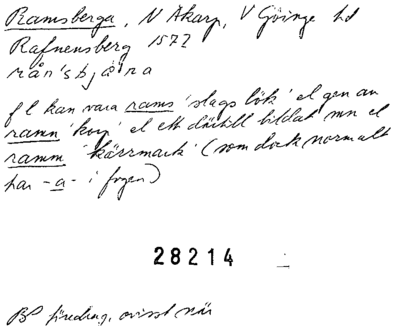 Ramsberga, N Åkarp, V Göinge hd
Rafnensberg 1572
f l kan vara rams 'slags lök' el gen av
ramn 'korp' el ett därtill bildat mn el
ramm 'kärrmark' (som dock normalt
har -a- i fogen)
28214
BP föredrag, ovisst när